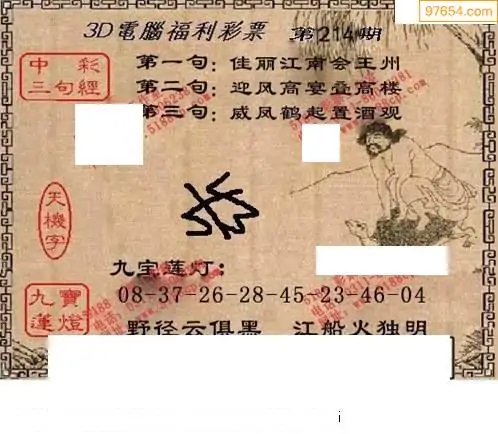 97654.com
3D電腦福利彩票 第214期
中彩
三句經
第一句：佳丽江南会王州
第二句：迎风高宴叠高楼
第三句：威凤鹤起置酒观
天機字
九宝莲灯：
九寶
蓮燈
08-37-26-28-45-23-46-04
野径云俱黑 江船火独明
i